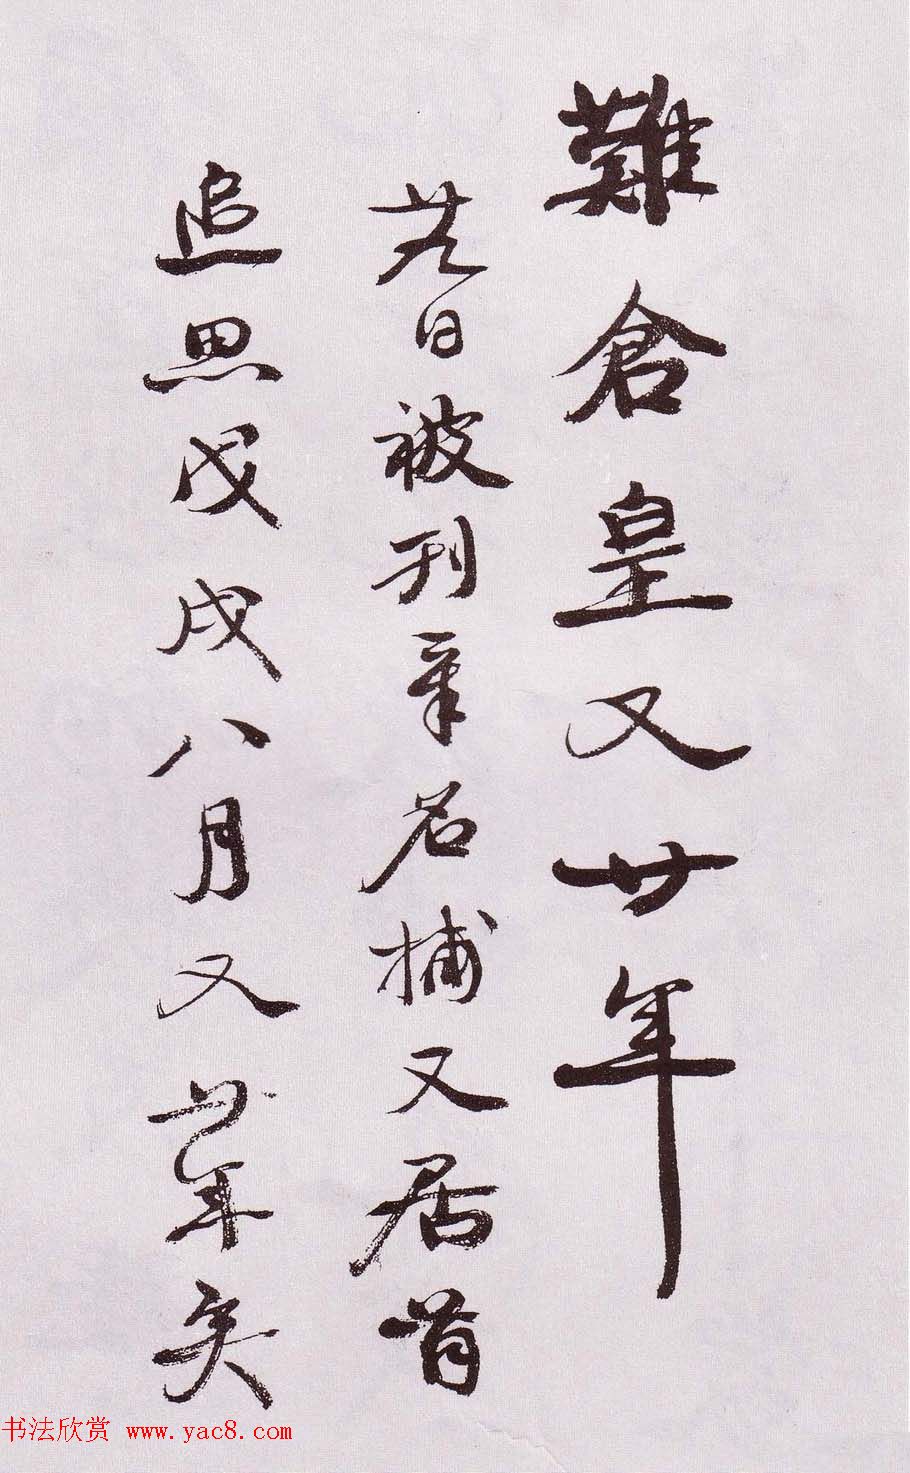 難倉皇又廿年
廿九日被刊章名捕又居首
追思戊戌八月又廿年矣
书法欣赏 www.yac8.com